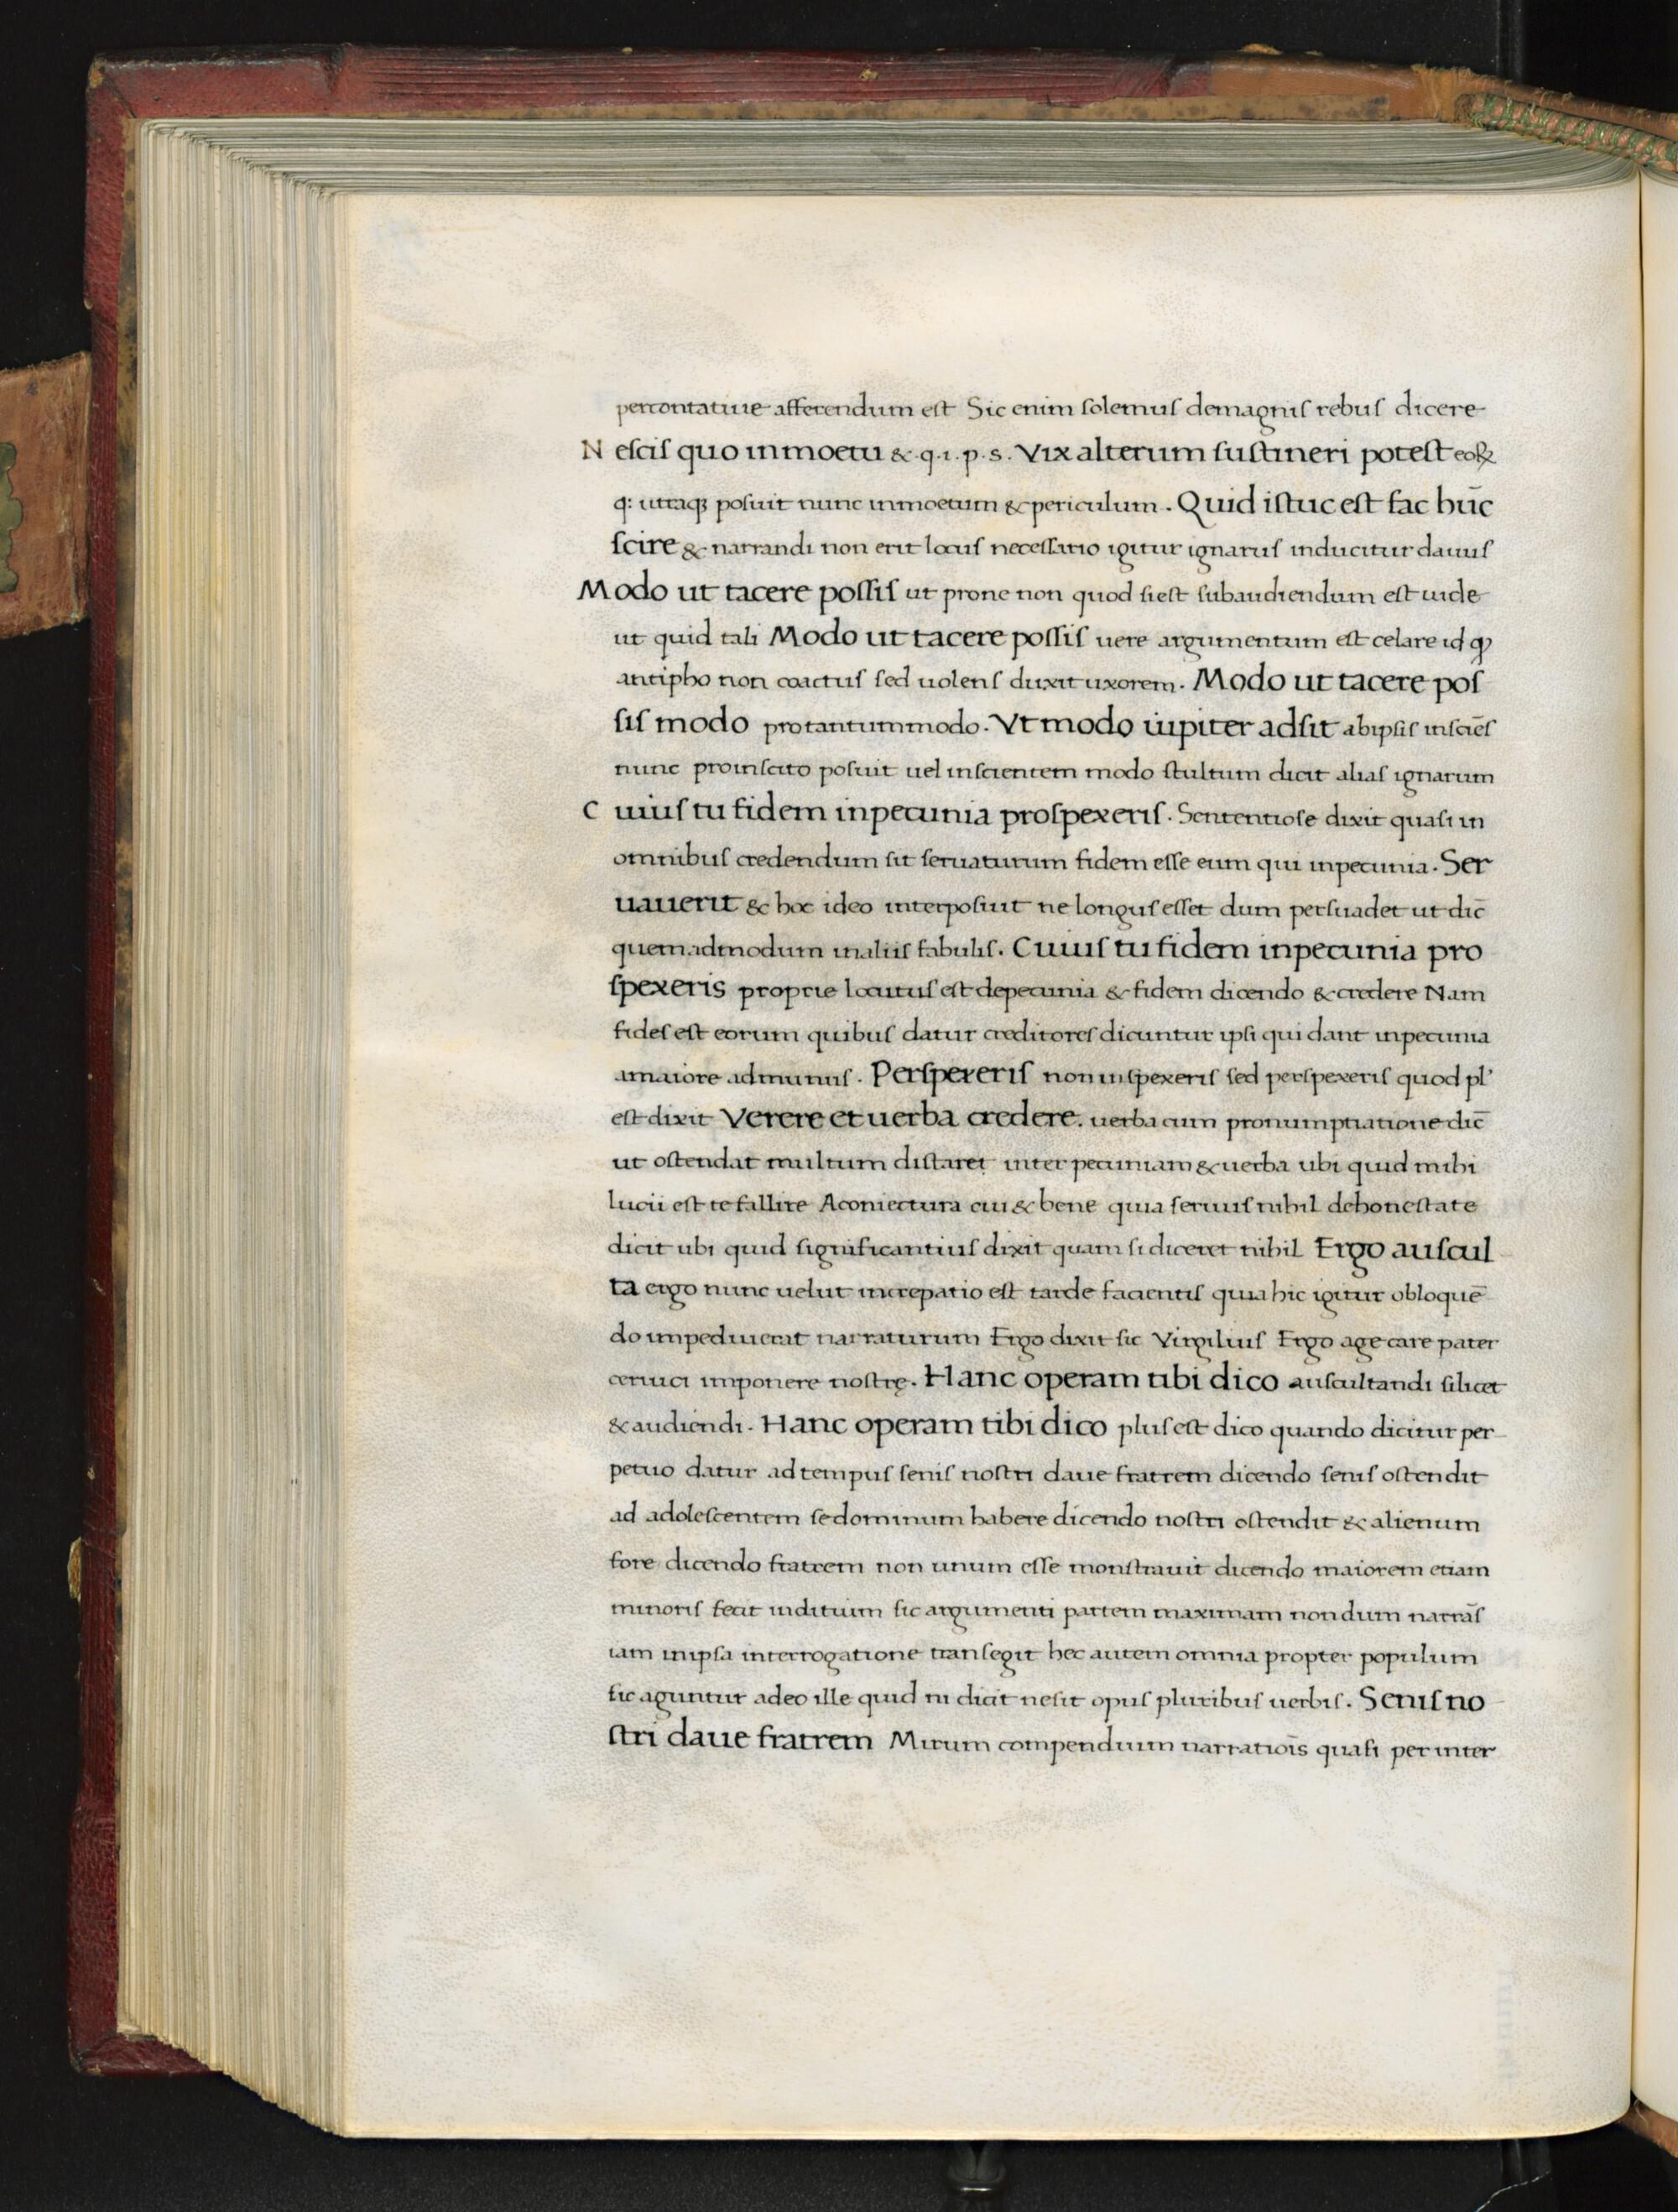 percontatiue afferendum est Sic enim solemus demagnis rebus dicere
Nescis quo inmoetu &.q.i.p.s. Vix alterum sustineri potest eoꝝ
q: utraqꝫ posuit nunc inmoetum & periculum. Quid istuc est fac hūc
scire & narrandi non erit locus necessario igitur ignarus inducitur dauus
Modo ut tacere possis ut prone non quod siest subaudiendum est uide
ut quid tali Modo ut tacere possis uere argumentum est celare id ꝙ
antipho non coactus sed uolens duxit uxorem. Modo ut tacere pos
sis modo protantummodo. Vt modo iupiter adsit abipsis insciēs
nunc proinscito posuit uel inscientem modo stultum dicit alias ignarum
Cuius tu fidem inpecunia prospexeris. Sententiose dixit quasi in
omnibus credendum sit seruaturum fidem esse eum qui inpecunia. Ser
uauerit & hoc ideo interposuit ne longus esset dum persuadet ut dic̄
quemadmodum inaliis fabulis. Cuius tu fidem inpecunia pro
spexeris proprie locutus est depecunia & fidem dicendo & credere Nam
fides est eorum quibus datur creditores dicuntur ipsi qui dant inpecunia
amaiore adminus. Perspexeris non inspexeris sed perspexeris quod pl'
est dixit Verere et uerba credere. uerba cum pronumptiatione dic̄
ut ostendat multum distaret inter pecuniam & uerba ubi quid mihi
lucii est te fallire Aconiectura cui & bene quia seruus nihil dehonestate
dicit ubi quid significantius dixit quam si diceret nihil Ergo auscul
ta ergo nunc uelut increpatio est tarde facientis quia hic igitur obloquē
do impediuerat narraturum Ergo dixit sic Virgilius Ergo age care pater
ceruici imponere nostrę. Hanc operam tibi dico auscultandi silicet
& audiendi. Hanc operam tibi dico plus est dico quando dicitur per
petuo datur ad tempus senis nostri daue fratrem dicendo senis ostendit
ad adolescentem se dominum habere dicendo nostri ostendit & alienum
fore dicendo fratrem non unum esse monstrauit dicendo maiorem etiam
minoris fecit indituim sic argumenti partem maximam nondum narrās
iam inipsa interrogatione transegit hec autem omnia propter populum
sic aguntur adeo ille quid ni dicit nesit opus pluribus uerbis. Senis no
stri daue fratrem Mirum compendium narratiōis quasi per inter